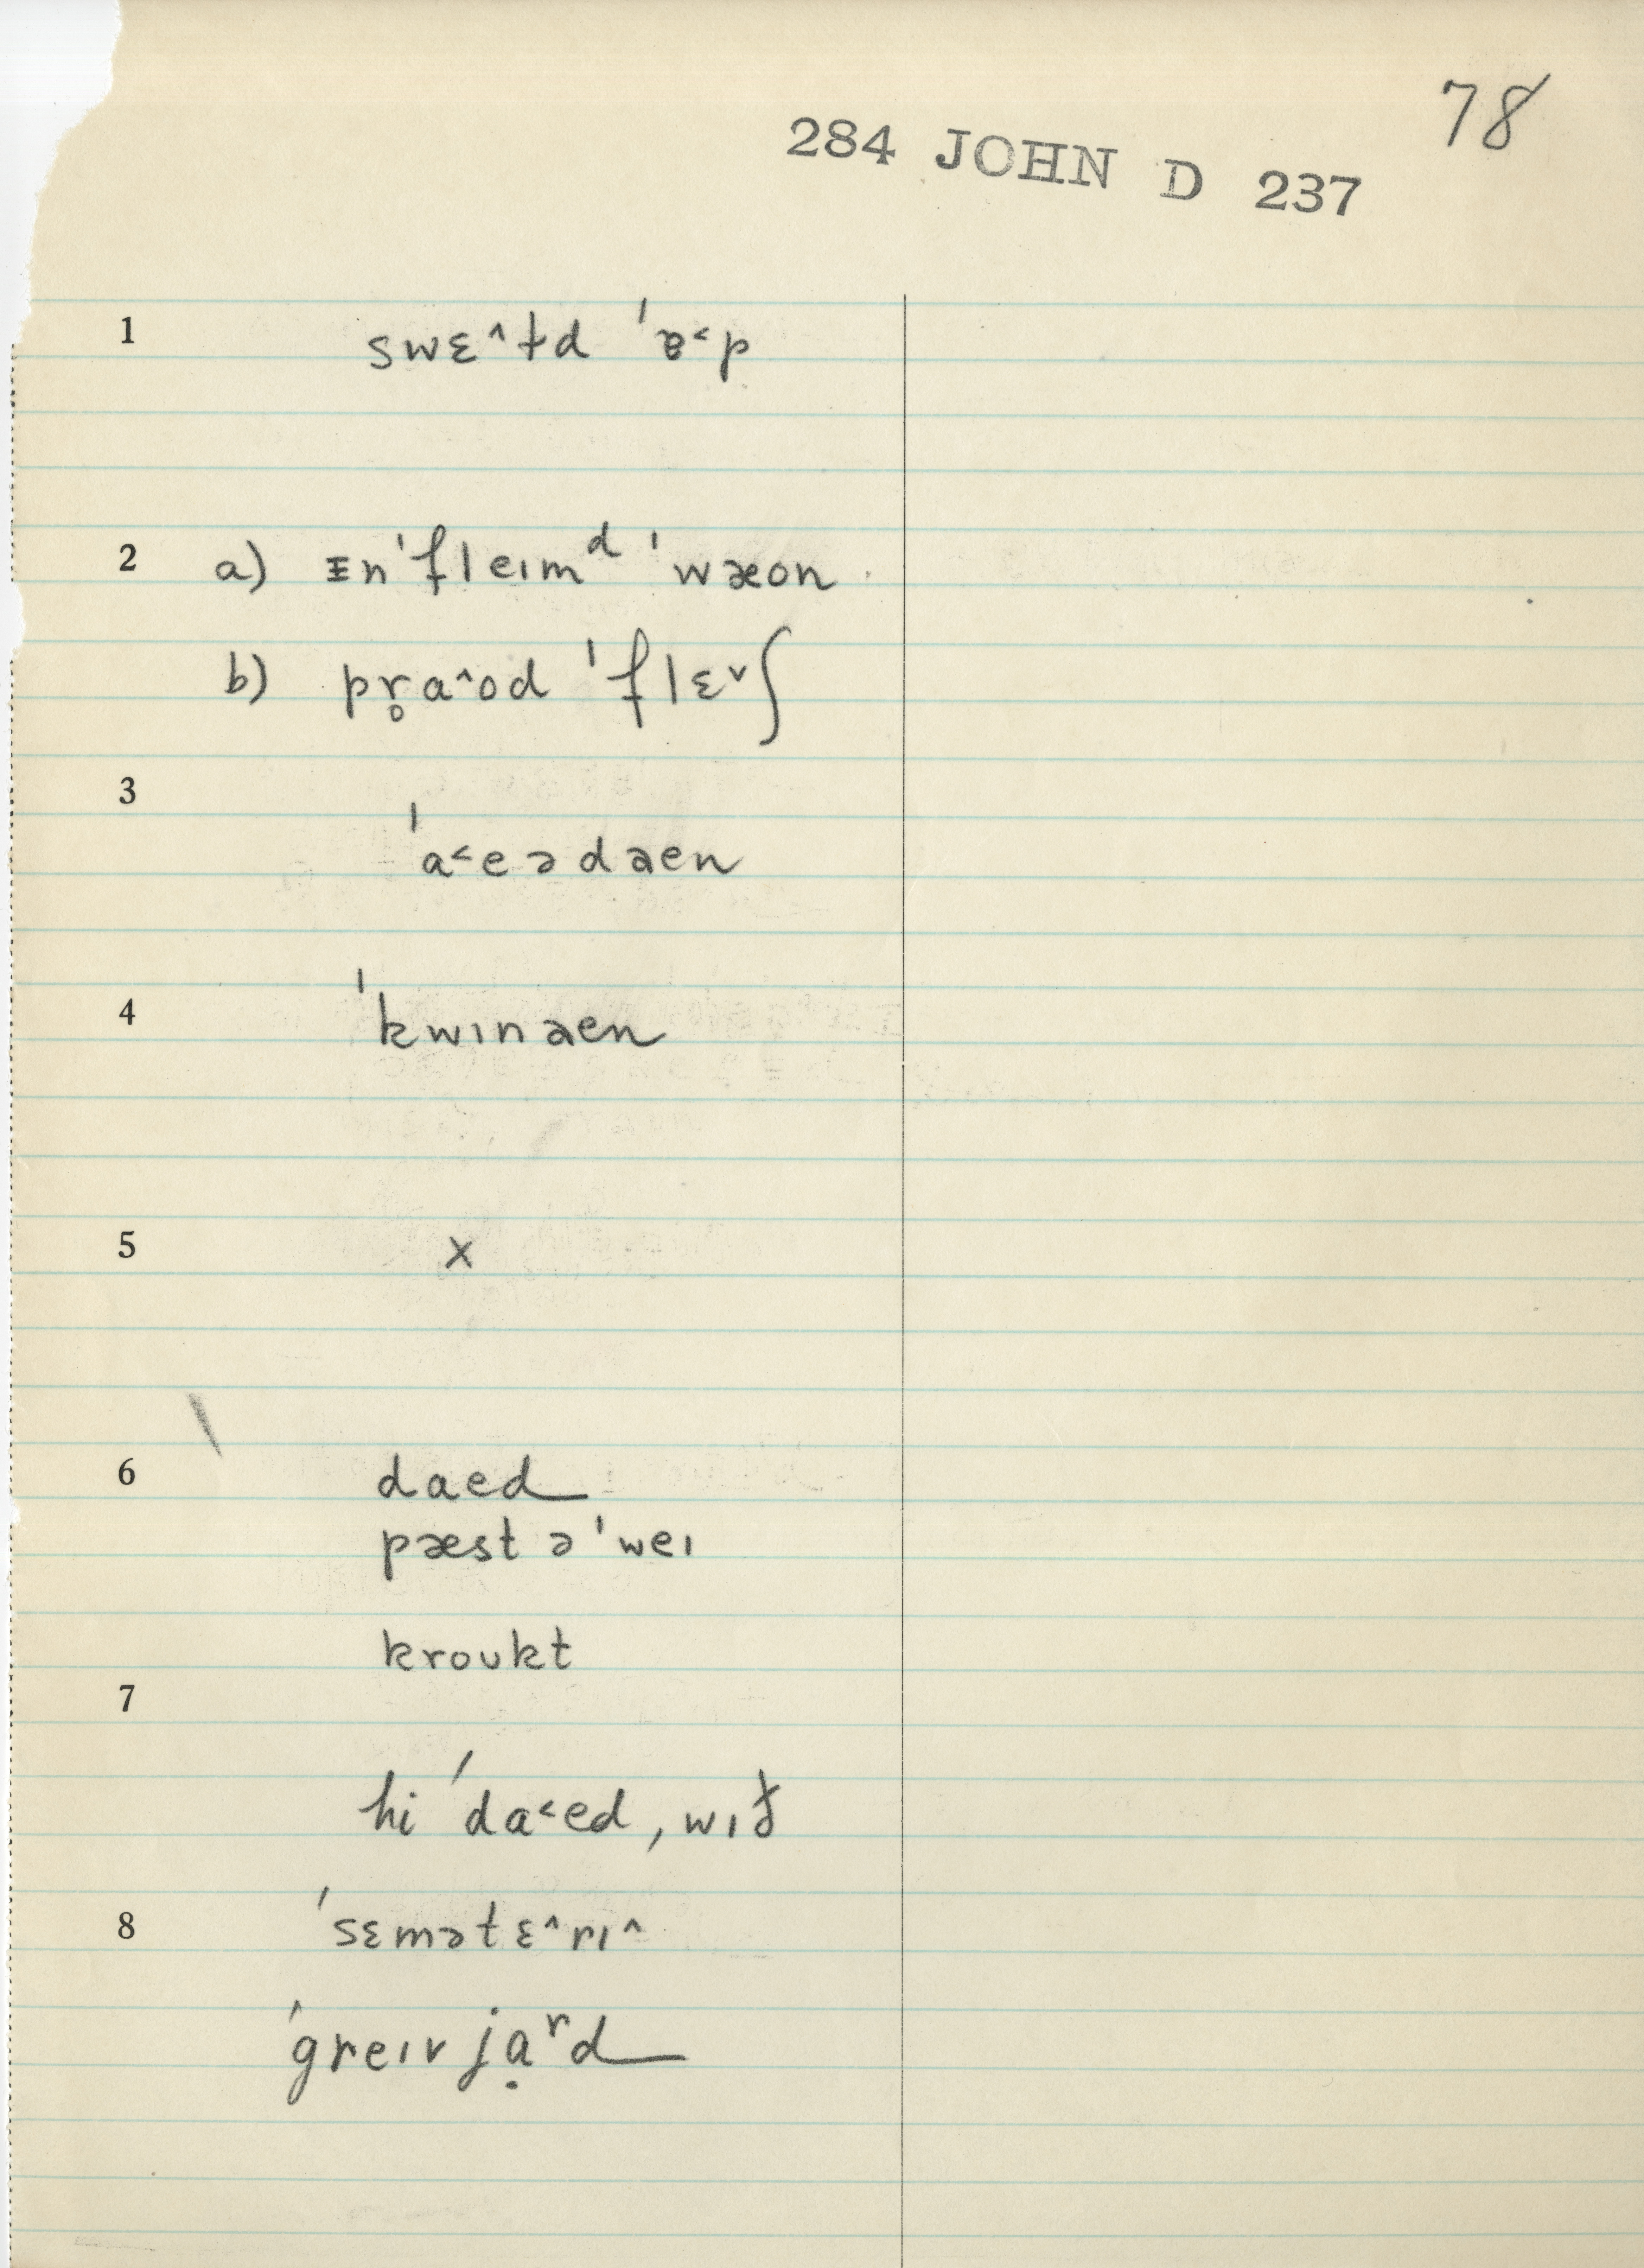 78
284 JOHN D 237
1 swɛ^ɫd ˈɐ˂p
2 a) ᵻnˈfleɪmᵈ ˈwæon
b) pr̥a^od ˈflɛˇʃ
3
ˈa˂eədaen
4 ˈkwɪnaen
5 x
6 daed
pæst əˈweɪ
kroʊkt
7
hi ˈda˂ed, wɪð
8 ˈsɛmətɛ^rɪ^
ˈgreɪvjạʳd